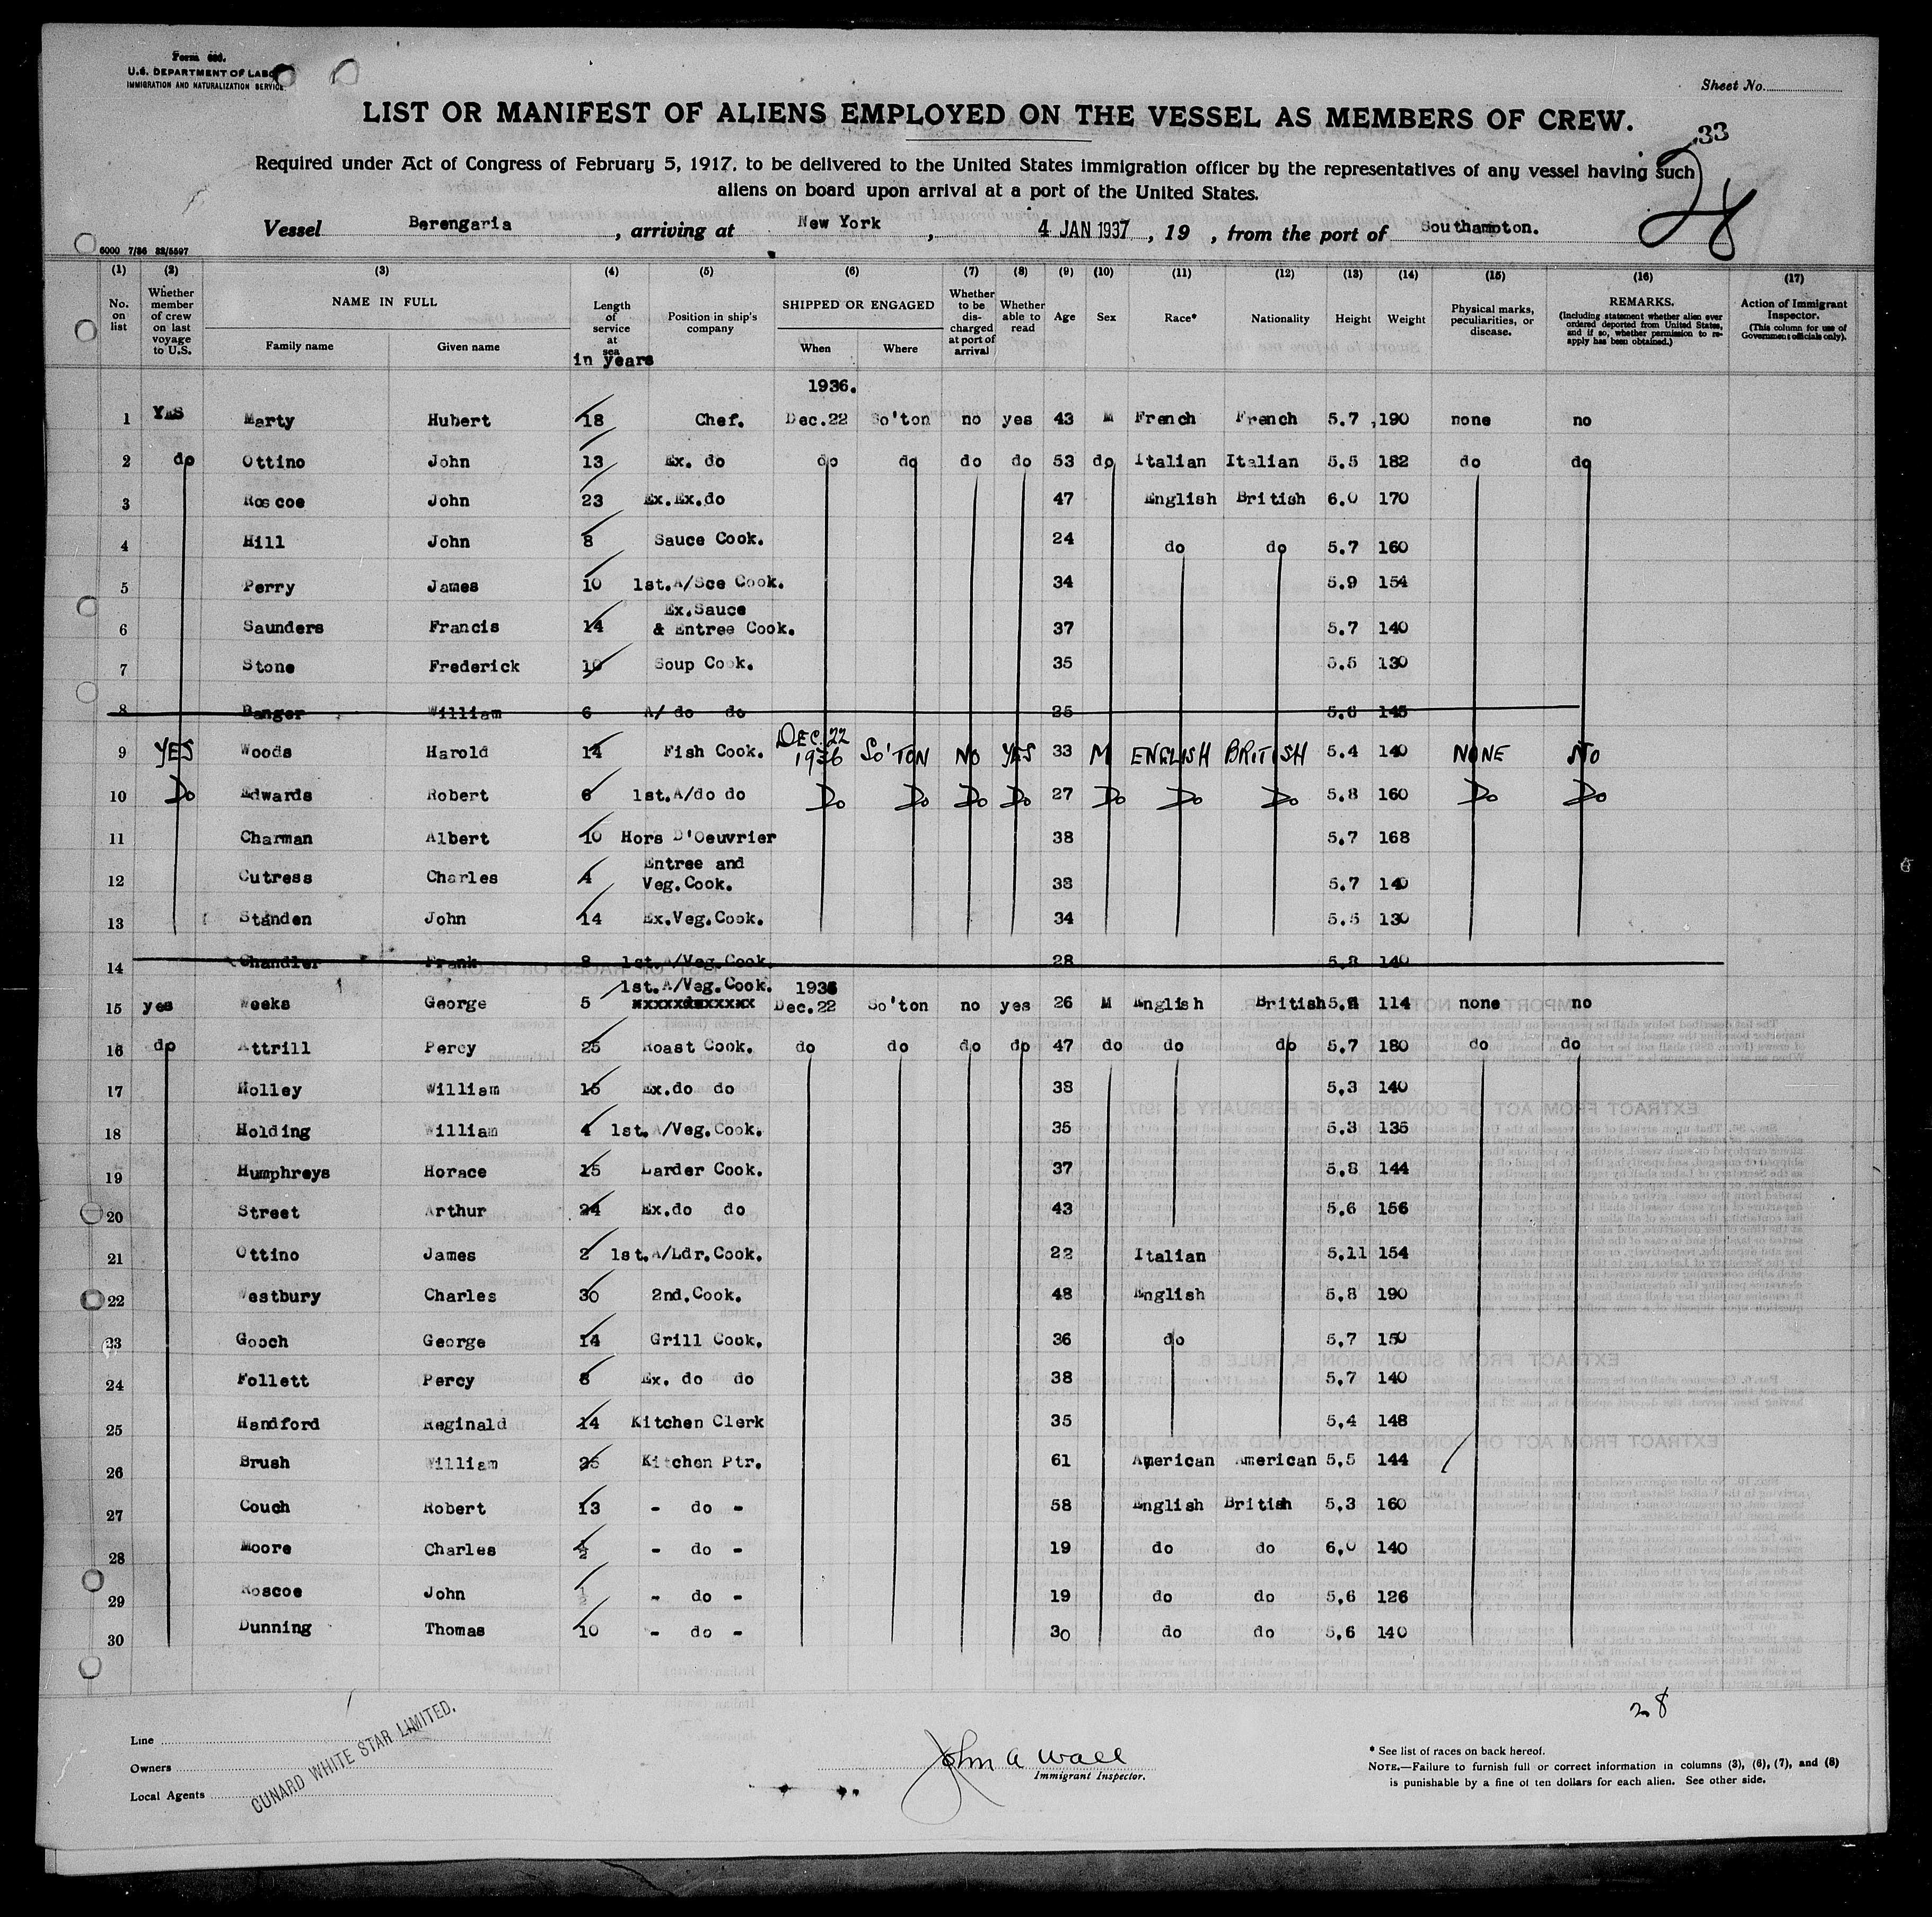 Form 680.
U.S. DEPARTMENT OF LABOR
IMMIGRATION AND NATURALIZATION SERVICE
Sheet No.
LIST OR MANIFEST OF ALIENS EMPLOYED ON THE VESSEL AS MEMBERS OF CREW.
33
Required under Act of Congress of February 5, 1917, to be delivered to the United States immigration officer by the representatives of any vessel having such
aliens on board upon arrival at a port of the United States.
28
Vessel Berengaria, arriving at New York, 4 JAN 1937, 19 , from the port of Southampton.
6000 7/36 32/5597
(1) (2) (3) (4) (5) (6) (7) (8) (9) (10) (11) (12) (13) (14) (15) (16) (17)
No. on list Whether member of crew on last voyage to U.S. NAME IN FULL Family name Given name Length of service at sea in years Position in ship's company SHIPPED OR ENGAGED When Where Whether to be discharged at port of arrival Whether able to read Age Sex Race* Nationality Height Weight Physical marks, peculiarities, or disease. REMARKS. (Including statement whether alien ever ordered deported from United States, and if so, whether permission to reapply has been obtained.) Action of Immigrant Inspector. (This column for use of Government officials only).
1936.
1 YES Marty Hubert 18 Chef. Dec.22 So'ton no yes 43 M French French 5.7 190 none no
2 do Ottino John 13 Ex. do do do do do 53 do Italian Italian 5.5 182 do do
3 Roscoe John 23 Ex.Ex.do 47 English British 6.0 170
4 Hill John 8 Sauce Cook. 24 do do 5.7 160
5 Perry James 10 1st.A/Sce Cook. 34 5.9 154
6 Saunders Francis 14 Ex.Sauce & Entree Cook. 37 5.7 140
7 Stone Frederick 10 Soup Cook. 35 5.5 130
8 Danger William 6 A/ do do 25 5.6 145
9 YES Woods Harold 14 Fish Cook. DEC. 22 1936 So'TON NO YES 33 M ENGLISH BRITISH 5.4 140 NONE NO
10 Do Edwards Robert 6 1st.A/do do Do Do Do Do 27 Do Do Do 5.8 160 Do Do
11 Charman Albert 10 Hors D'Oeuvrier 38 5.7 168
12 Cutress Charles 4 Entree and Veg.Cook. 38 5.7 140
13 Standen John 14 Ex.Veg.Cook. 34 5.5 130
14 Chandler Frank 8 1st.A/Veg.Cook. 28 5.8 140
15 yes Weeks George 5 1st.A/Veg.Cook. 1936 Dec.22 So'ton no yes 26 M English British 114 none no
16 do Attrill Percy 25 Roast Cook. do do do do 47 do do do 5.7 180 do do
17 Holley William 15 Ex.do do 38 5.3 140
18 Holding William 4 1st.A/Veg.Cook. 35 5.8 135
19 Humphreys Horace 15 Larder Cook. 37 5.8 144
20 Street Arthur 24 Ex.do do 43 5.6 156
21 Ottino James 2 1st.A/Ldr.Cook. 22 Italian 5.11 154
22 Westbury Charles 30 2nd.Cook. 48 English 5.8 190
23 Gooch George 14 Grill Cook. 36 do 5.7 150
24 Follett Percy 8 Ex. do do 38 5.7 140
25 Handford Reginald 14 Kitchen Clerk 35 5.4 148
26 Brush William 25 Kitchen Ptr. 61 American American 5.5 144
27 Couch Robert 13 - do - 58 English British 5.3 160
28 Moore Charles ½ - do - 19 do do 6.0 140
29 Roscoe John ½ - do - 19 do do 5.6 126
30 Dunning Thomas 10 - do - 30 do do 5.6 140
28
Line
Owners
Local Agents
CUNARD WHITE STAR LIMITED.
John A Wall
Immigrant Inspector.
* See list of races on back hereof.
NOTE.—Failure to furnish full or correct information in columns (3), (6), (7), and (8)
is punishable by a fine of ten dollars for each alien. See other side.